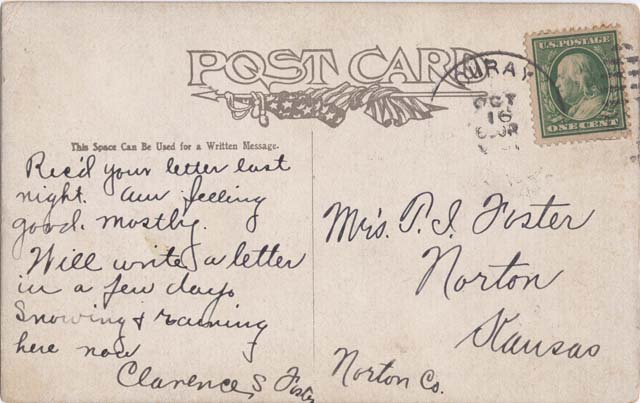 POST CARD
U.S. POSTAGE
ONE CENT
OURAY
OCT
16
This Space Can Be Used for a Written Message.
Rec'd your letter last
night. am feeling
good. mostly.
Will write a letter
in a few days
Snowing & raining
here now
Clarence S Foster
Mrs. P. I. Foster
Norton
Kansas
Norton Co.